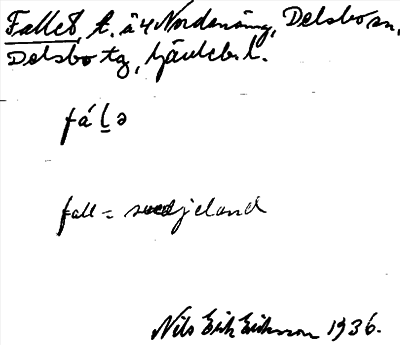 Fallet, t. å 4 Nordanäng, Delsbo sn,
Delsbo tg, Gävlebs l.
fá l̲ ə
fall = svedjeland
Nils Erik Eriksson 1936.